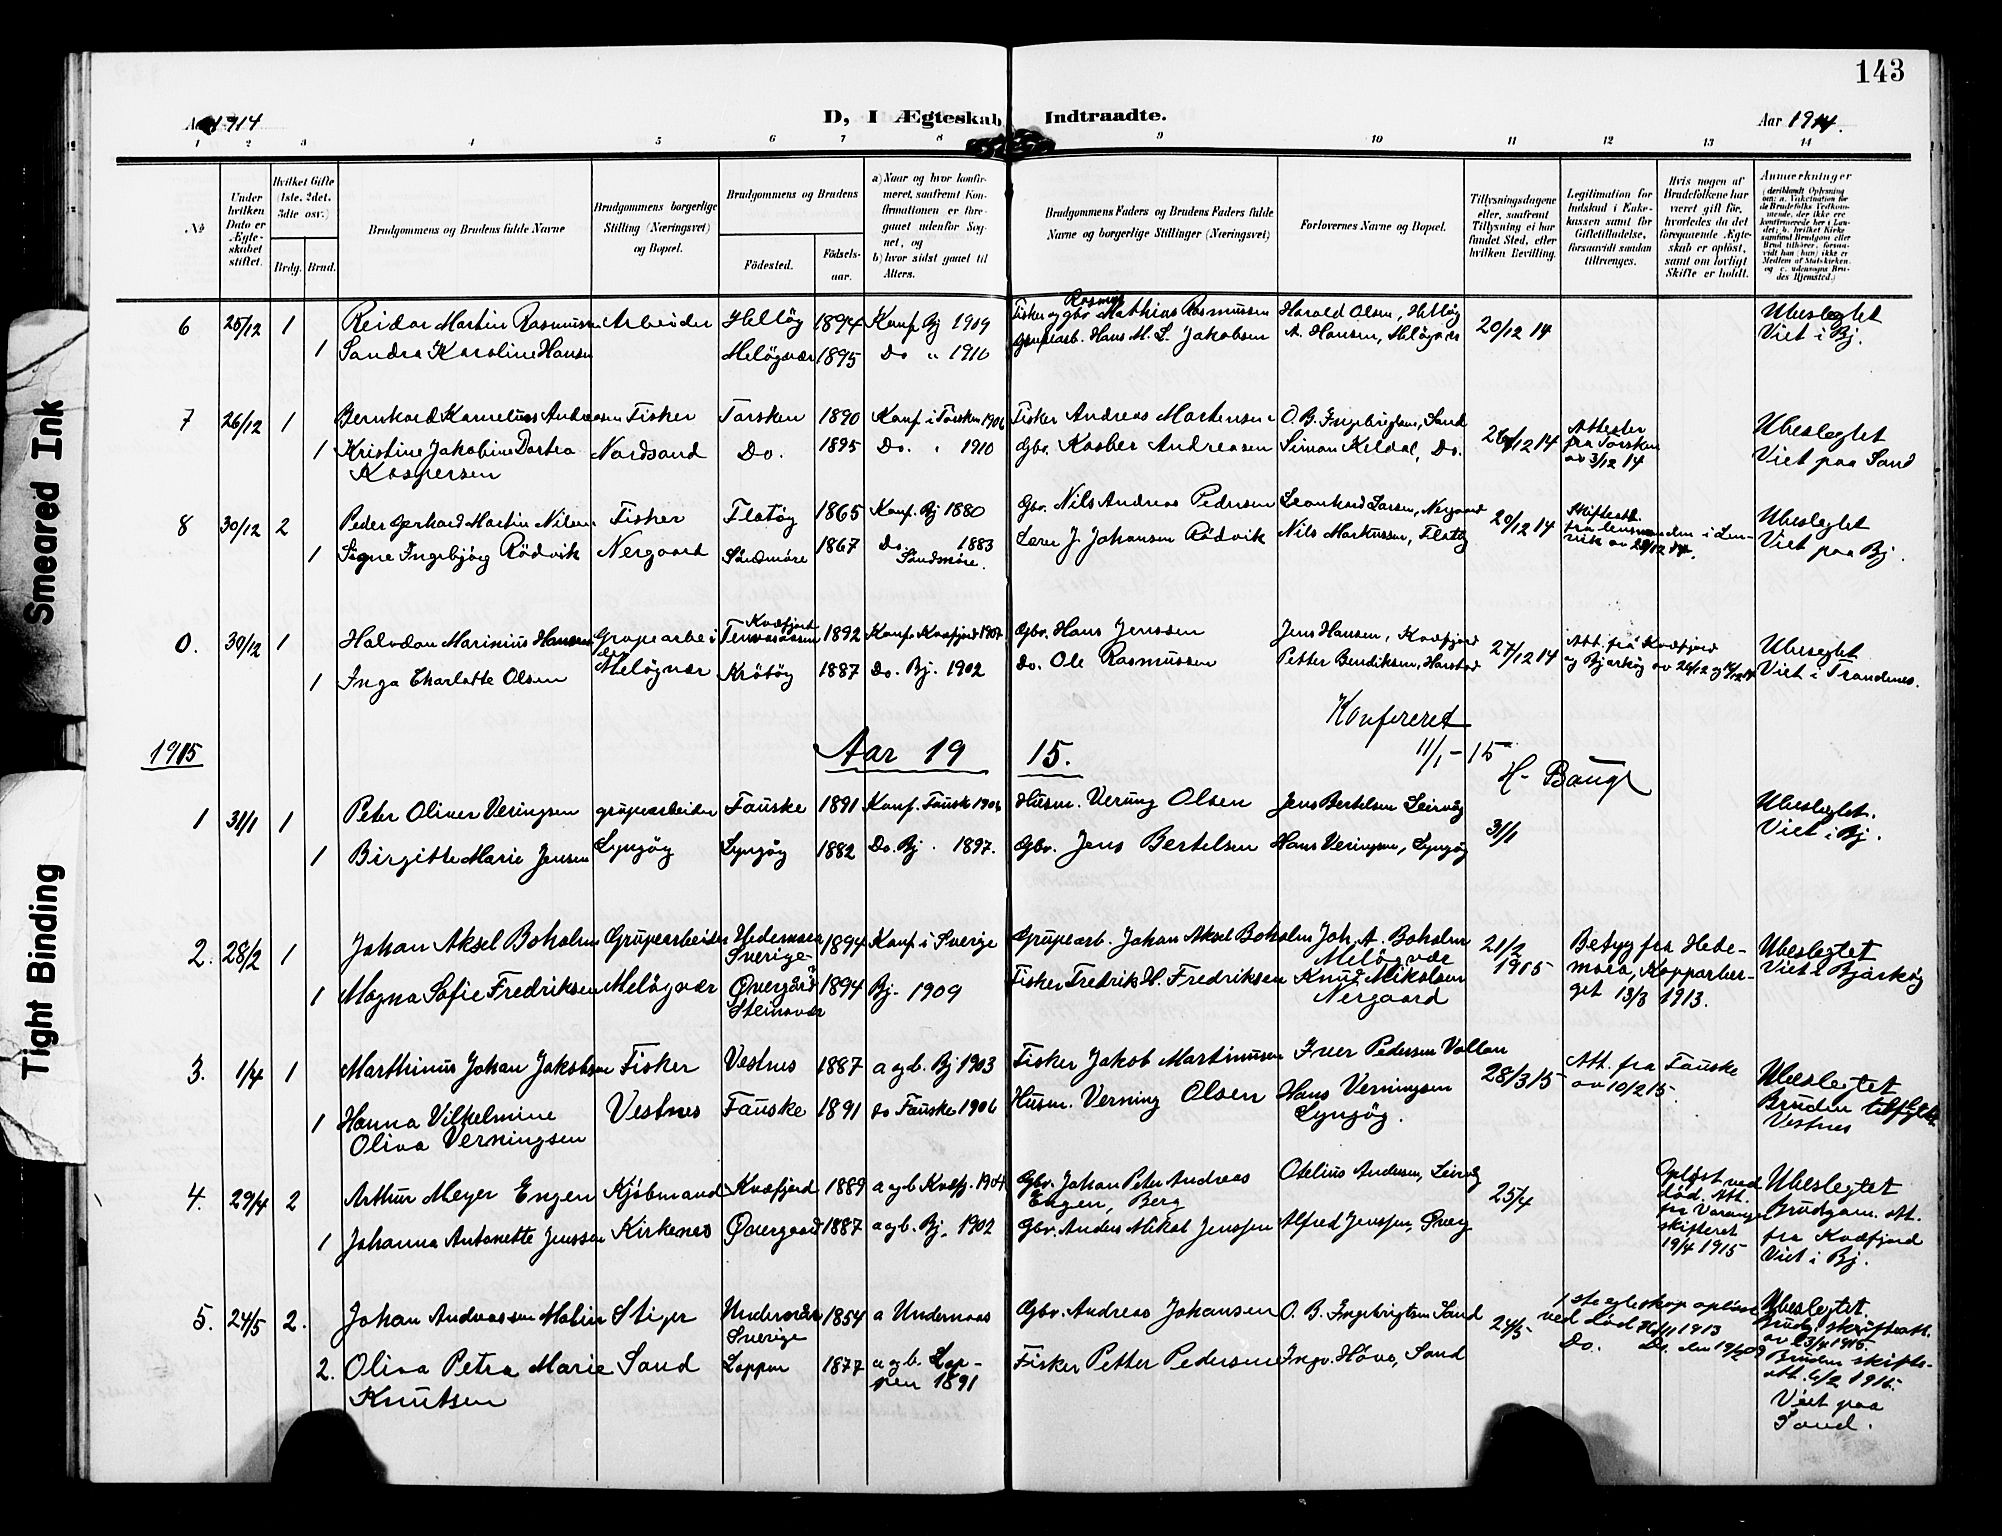 143
Aar 1914
D, I Ægteskab Indtraadte.
Aar 1914.
1 2 3 4 5 6 7 8 9 10 11 12 13 14
№
Under hvilken Dato er Ægteskabet stiftet.
Hvilket Gifte (1ste, 2det, 3die osv.)
Brdg. Brud.
Brudgommens og Brudens fulde Navne
Brudgommens borgerlige Stilling (Næringsvei) og Bopæl.
Brudgommens og Brudens
Fødested.
Fødselsaar.
a) Naar og hvor konfirmeret, saafremt Konfirmationen er foregaaet udenfor Sognet, og
b) hvor sidst gaaet til Alters.
Brudgommens Faders og Brudens Faders fulde Navne og borgerlige Stillinger (Næringsvei)
Forlovernes Navne og Bopæl.
Tillysningsdagene eller, saafremt Tillysning ei har fundet Sted, efter hvilken Bevilling.
Legitimation for Indskud i Enkekassen samt for Giftetilladelse, forsaavidt saadan tiltrænges.
Hvis nogen af Brudefolkene har været gift før, hvorledes da det foregaaende Ægteskab er opløst, samt om lovligt Skifte er holdt.
Anmærkninger
6 25/12 1 Reidar Martin Rasmussen Arbeider Helløy 1894 Konf. Bj 1909 Fisker og gbr. Rasmus Mathias Rasmussen Harald Olsen, Helløy 20/12 14 Ubeslegtet
1 Sandra Karoline Hansen Meløyvær 1895 Do " 1910 Grupearb. Hans M. L. Jakobsen A. Hansen, Meløyvær Viet i Bj.
7 26/12 1 Bernhard Kornelius Andreassen Fisker Torsken 1890 Konf. i Torsken 1906 Fisker Andreas Mortensen O. B. Ingebrigtsen, Sand 26/12 14 Attester fra Torsken av 3/12 14 Ubeslegtet
1 Kristine Jakobine Dortea Kaspersen Nordsand Do. 1895 Do. " 1910 Gbr. Kasber Andreasen Simon Kildal, Do. Viet paa Sand
8 30/12 2 Peder Gerhard Martin Nilsen Fisker Flatøy 1865 Konf. Bj 1880 Gbr. Nils Andreas Pedersen Leonhard Larsen, Nergaard 20/12 14 Skifteatt. fra lensmanden i Lenvik av Ubeslegtet
1 Signe Ingebjørg Rödvik Nergaard Söndmöre 1867 Do. 1883 Söndmöre. Lerer J. Johansen Rödvik Nils Markussen, Flatøy Viet paa Bj.
0. 30/12 1 Halvdan Marinius Hansen Grupearbeider Kvæfjord 1892 Konf. Kvæfjord 1907 Gbr. Hans Jenssen Jens Hansen, Kvæfjord 27/12 14 Att. fra Kvæfjord og Bjarkøy av 26/12 og Ubeslegtet
1 Inga Charlotte Olsen Meløyvær Krøtøy 1887 Do. Bj. 1902 Do. Ole Rasmussen Petter Bendiksen, Harstad Viet i Trondenes.
Konfereret
11/1 - 15
H. Baugr
1915
Aar 19 15.
1 31/1 1 Peter Oliver Veringsen grupearbeider Fauske 1891 Konf. Fausk 1906 Husm. Verung Olsen Jens Bertelsen Leirvåg 31/1 Ubeslegtet.
1 Birgitte Marie Jensen Lyngøy Lyngøy 1882 Do. Bj. 1897. Gbr. Jens Bertelsen Hans Veringsen, Lyngøy Viet i Bj.
2. 28/2 1 Johan Aksel Boholm Grupearbeider Hedemora Sverige 1894 Konf. i Sverige Grupearb. Johan Aksel Boholm Joh. A. Boholm Meløyvær 21/2 1915 Betyg fra Hedemora, Kopparberget 13/8 1913. Ubeslegtet
1 Magna Sofie Fredriksen Meløyvær Övergård Steinavær 1894 Bj. 1909 Fisker Fredrik H. Fredriksen Knud Mikalsen Nergaard Viet i Bjarkøy
3. 1/4 1 Marthinus Johan Jakobsen Fisker Vestnes 1887 a og b. Bj 1903 Fisker Jakob Martinussen Iver Pedersen Vollan 28/3 15 Att. fra Fauske av 10/2 15. Ubeslegtet
1 Hanna Vilhelmine Oliva Verningsen Vestnes Fauske 1891 do Fauske 1906 Husm. Verning Olsen Hans Verningsen Lyngøy. Bruden Vestnes
4. 29/4 2 Arthur Meyer Engen Kjøbmand Kvæfjord 1889 a og b Kvæfj. 1904 Gbr. Johan Peter Andreas Engen, Berg Otelius Andersen, Leirvåg 25/4 Opløst ved død. Att. fra Varanger skifteret 19/4 1915 Ubeslegtet
1 Johanna Antonette Jenssen Kirkenes Overgaard 1887 a og b. Bj. 1902 Gbr. Anders Mikal Jenssen Alfred Jenssen, Brudgom. att. fra Kvæfjord Viet i Bj.
5. 24/5 2. Johan Andreassen Malin Stiger Undersåker Sverige 1854 a Undernaas Gbr. Andreas Johansen O. B. Ingebrigtsen Sand 24/5 1ste egteskap opløst ved død 1913 Ubeslegtet. Brudg. skifteatt. av
2. Oliva Petra Marie Knutsen Sand Loppen 1877 a og b. Loppen 1891 Fisker Petter Pedersen Ingv. Høve, Sand Do. Do. den Bruden skifteatt. 6/2 1915. Viet paa Sand.
Smeared Ink
Tight Binding